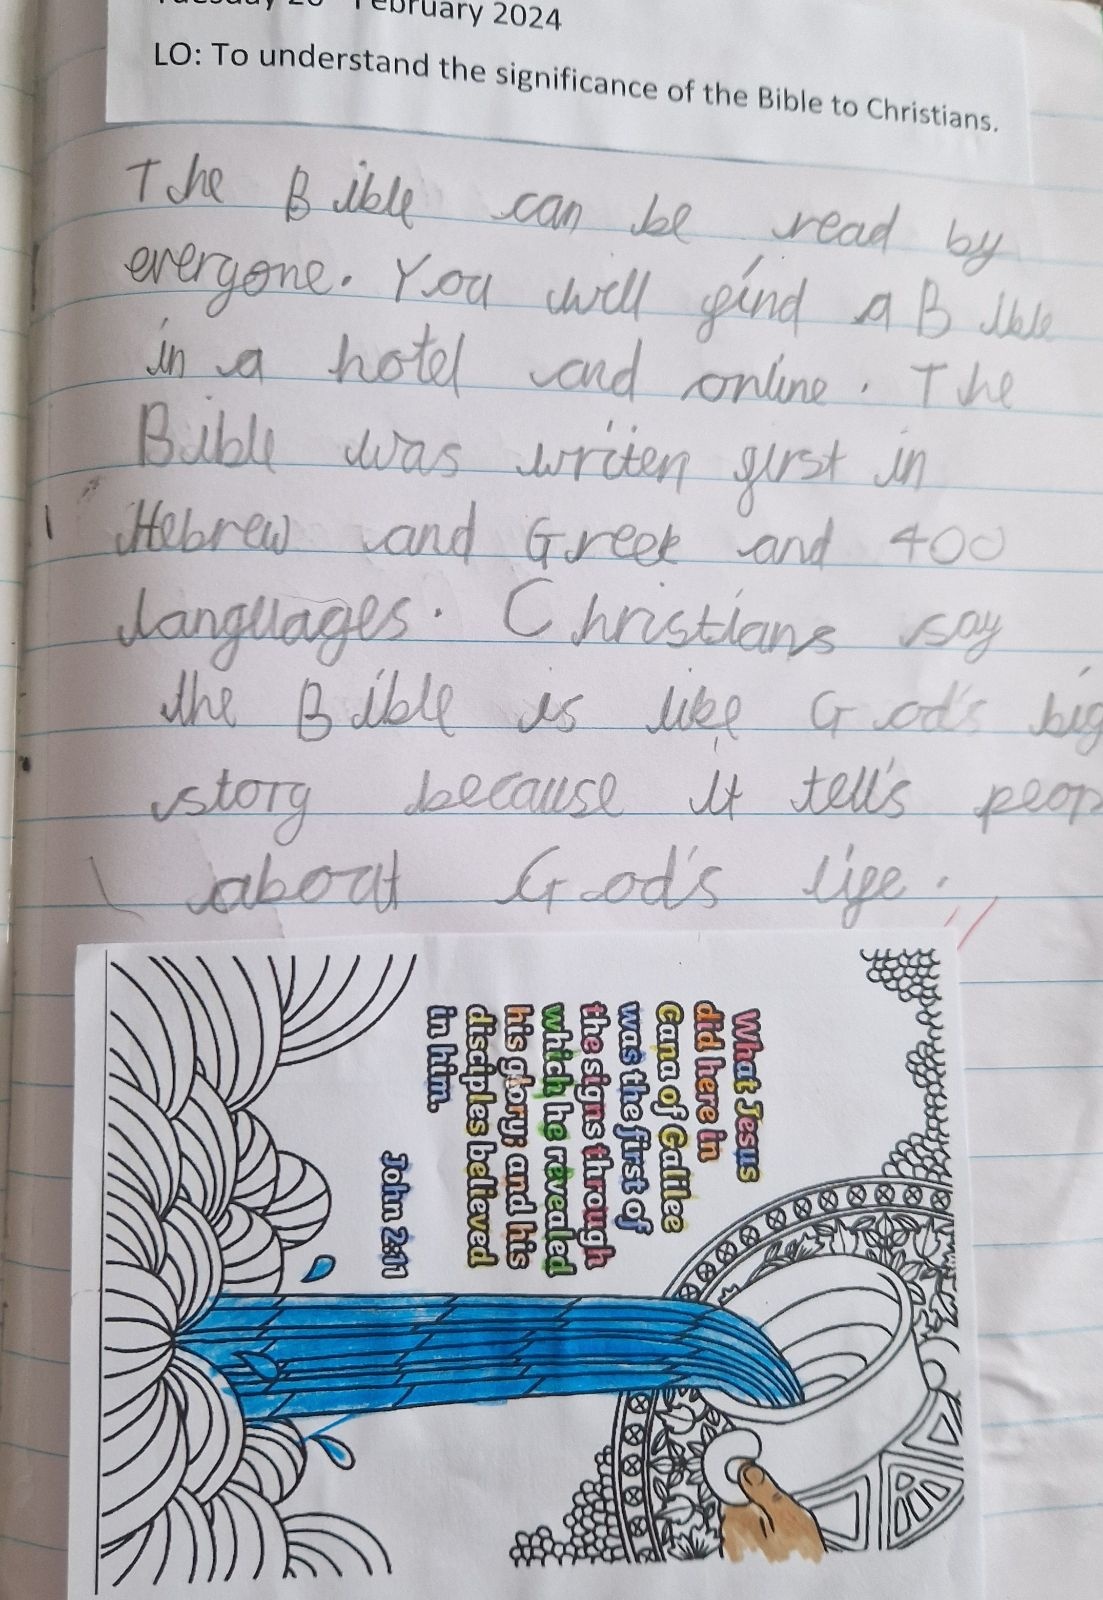 February 2024
LO: To understand the significance of the Bible to Christians.
The Bible can be read by
everyone. You will find a Bible
in a hotel and online. The
Bible was writen first in
Hebrew and Greek and 400
languages. Christians say
the Bible is like God's big
story because it tell's peop
about God's life.
What Jesus
did here in
Cana of Galilee
was the first of
the signs through
which he revealed
his glory; and his
disciples believed
in him.
John 2:11